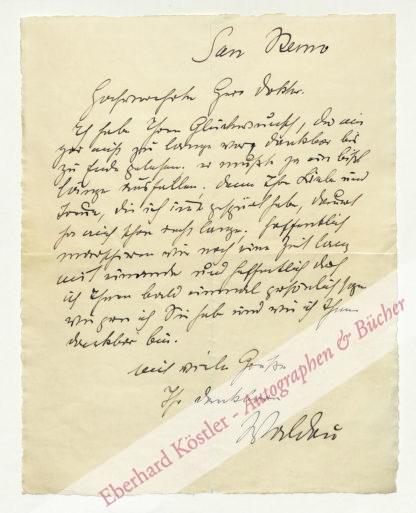 San Remo
Hochverehrter Herr Doktor.
Ich habe Ihren Glückwunsch, der mir
gar nicht zu lange war, dankbar bis
zu Ende gelesen. er mußte ja ein bißl
länger ausfallen, denn Ihre Liebe und
Treue, die ich immer gespürt habe, dauert
ja auch schon recht lange. Hoffentlich
marschieren wir noch eine Zeit lang
mit einander und hoffentlich darf
ich Ihnen bald einmal persönlich sagen
wie gern ich Sie hab und wie ich Ihnen
dankbar bin.
Mit viele Grüße
Ihr dankbarer
Waldau
Eberhard Köstler - Autographen & Bücher